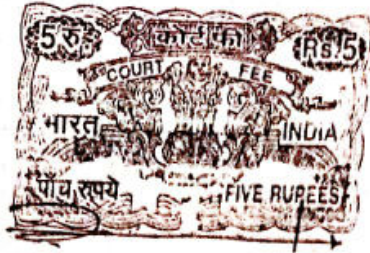 5 रु. कोर्ट फी Rs. 5
COURT FEE
भारत INDIA
पाँच रुपये FIVE RUPEES